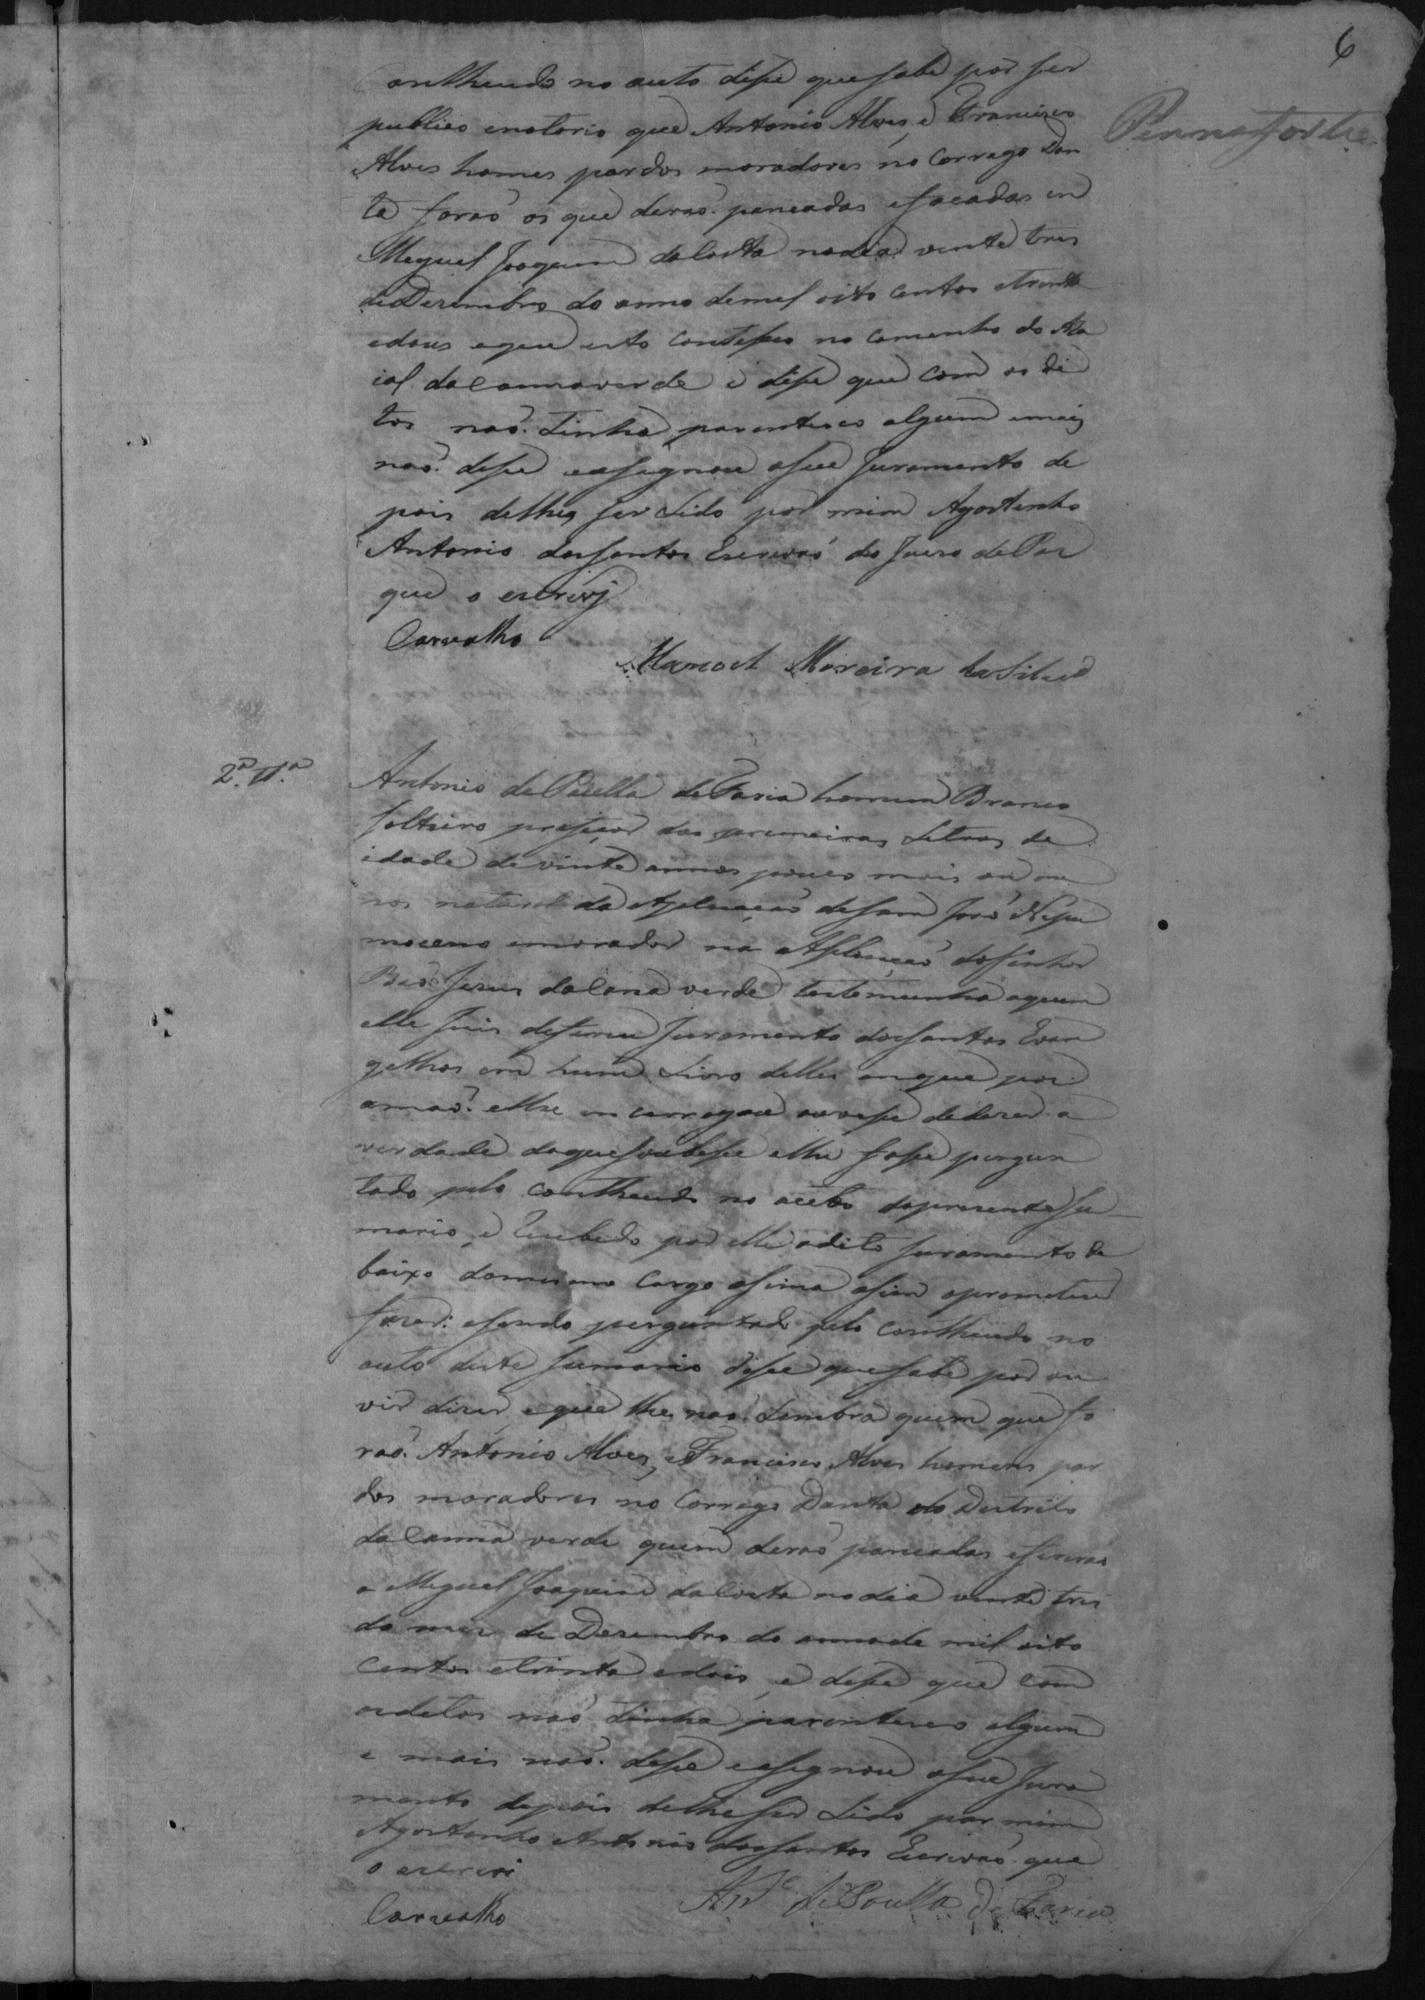 6
Pennaforte
Conthiudo no auto dise que sabe por ser
publico enotorio que Antonio Alves, e Francisco
Alves homes pardos moradores no Corrego Dan
ta foraõ os que deraõ pancadas efacadas em
Meguel Joaquim daCosta nodia vinte tres
deDezembro do anno demil oito centos etrinta
edous eque isto Contesseo no Caminho do Ra
ial daCannaverde e dise que Com os di
tos naõ tinha parentesco algum emais
naõ dise easignou oseu Juramento de
pois delhe ser Lido por mim Agostinho
Antonio dosSantos Escrivaõ do Juizo dePas
que o escrivj
Carvalho
Manoel Moreira daSilva
2ª Tª
Antonio dePadua deFaria homem Branco
solteiro profeçor das primeiras Letras de
idade de vinte annos pouco mais ou me
nos natural da Aplicaçaõ deSam Joaõ Nepu
moceno emorador na Aplicaçaõ doSenhor
Bom Jezus daCana verde testemunha aquem
elle Juis deferiu Juramento dosSantos Evan
gelhos em hum Livro delles emque pos
amaõ elhe emcarregou dedizer a
verdade doquesoubese elhe fose pergun
tado pelo Conthiudo no auto dopresente Su
mario, e Recebido por elle odito Juramento de
baixo domesmo Cargo asima asim oprometeu
fazer: esendo perguntado pelo Conthiudo no
auto deste Sumario dise que sabe por ou
vir dizer eque lhe naõ Lembra quem que fo
raõ Antonio Alves, eFrancisco Alves homens par
dos moradores no Corrego Danta do Destrito
daCanna verde quem deraõ pancadas eferiraõ
a Miguel Joaquim daCosta nodia vinte tres
do mez de Dezembro do annode mil oito
Centos etrinta edois, e dise que Com
os ditos naõ tinha parentesco algum
e mais naõ dise easignou oseu Jura
mento depois delhe ser Lido por mim
Agostinho Antonio dosSantos Escrivaõ que
o escrivi
Carvalho
Antº dePadua deFaria